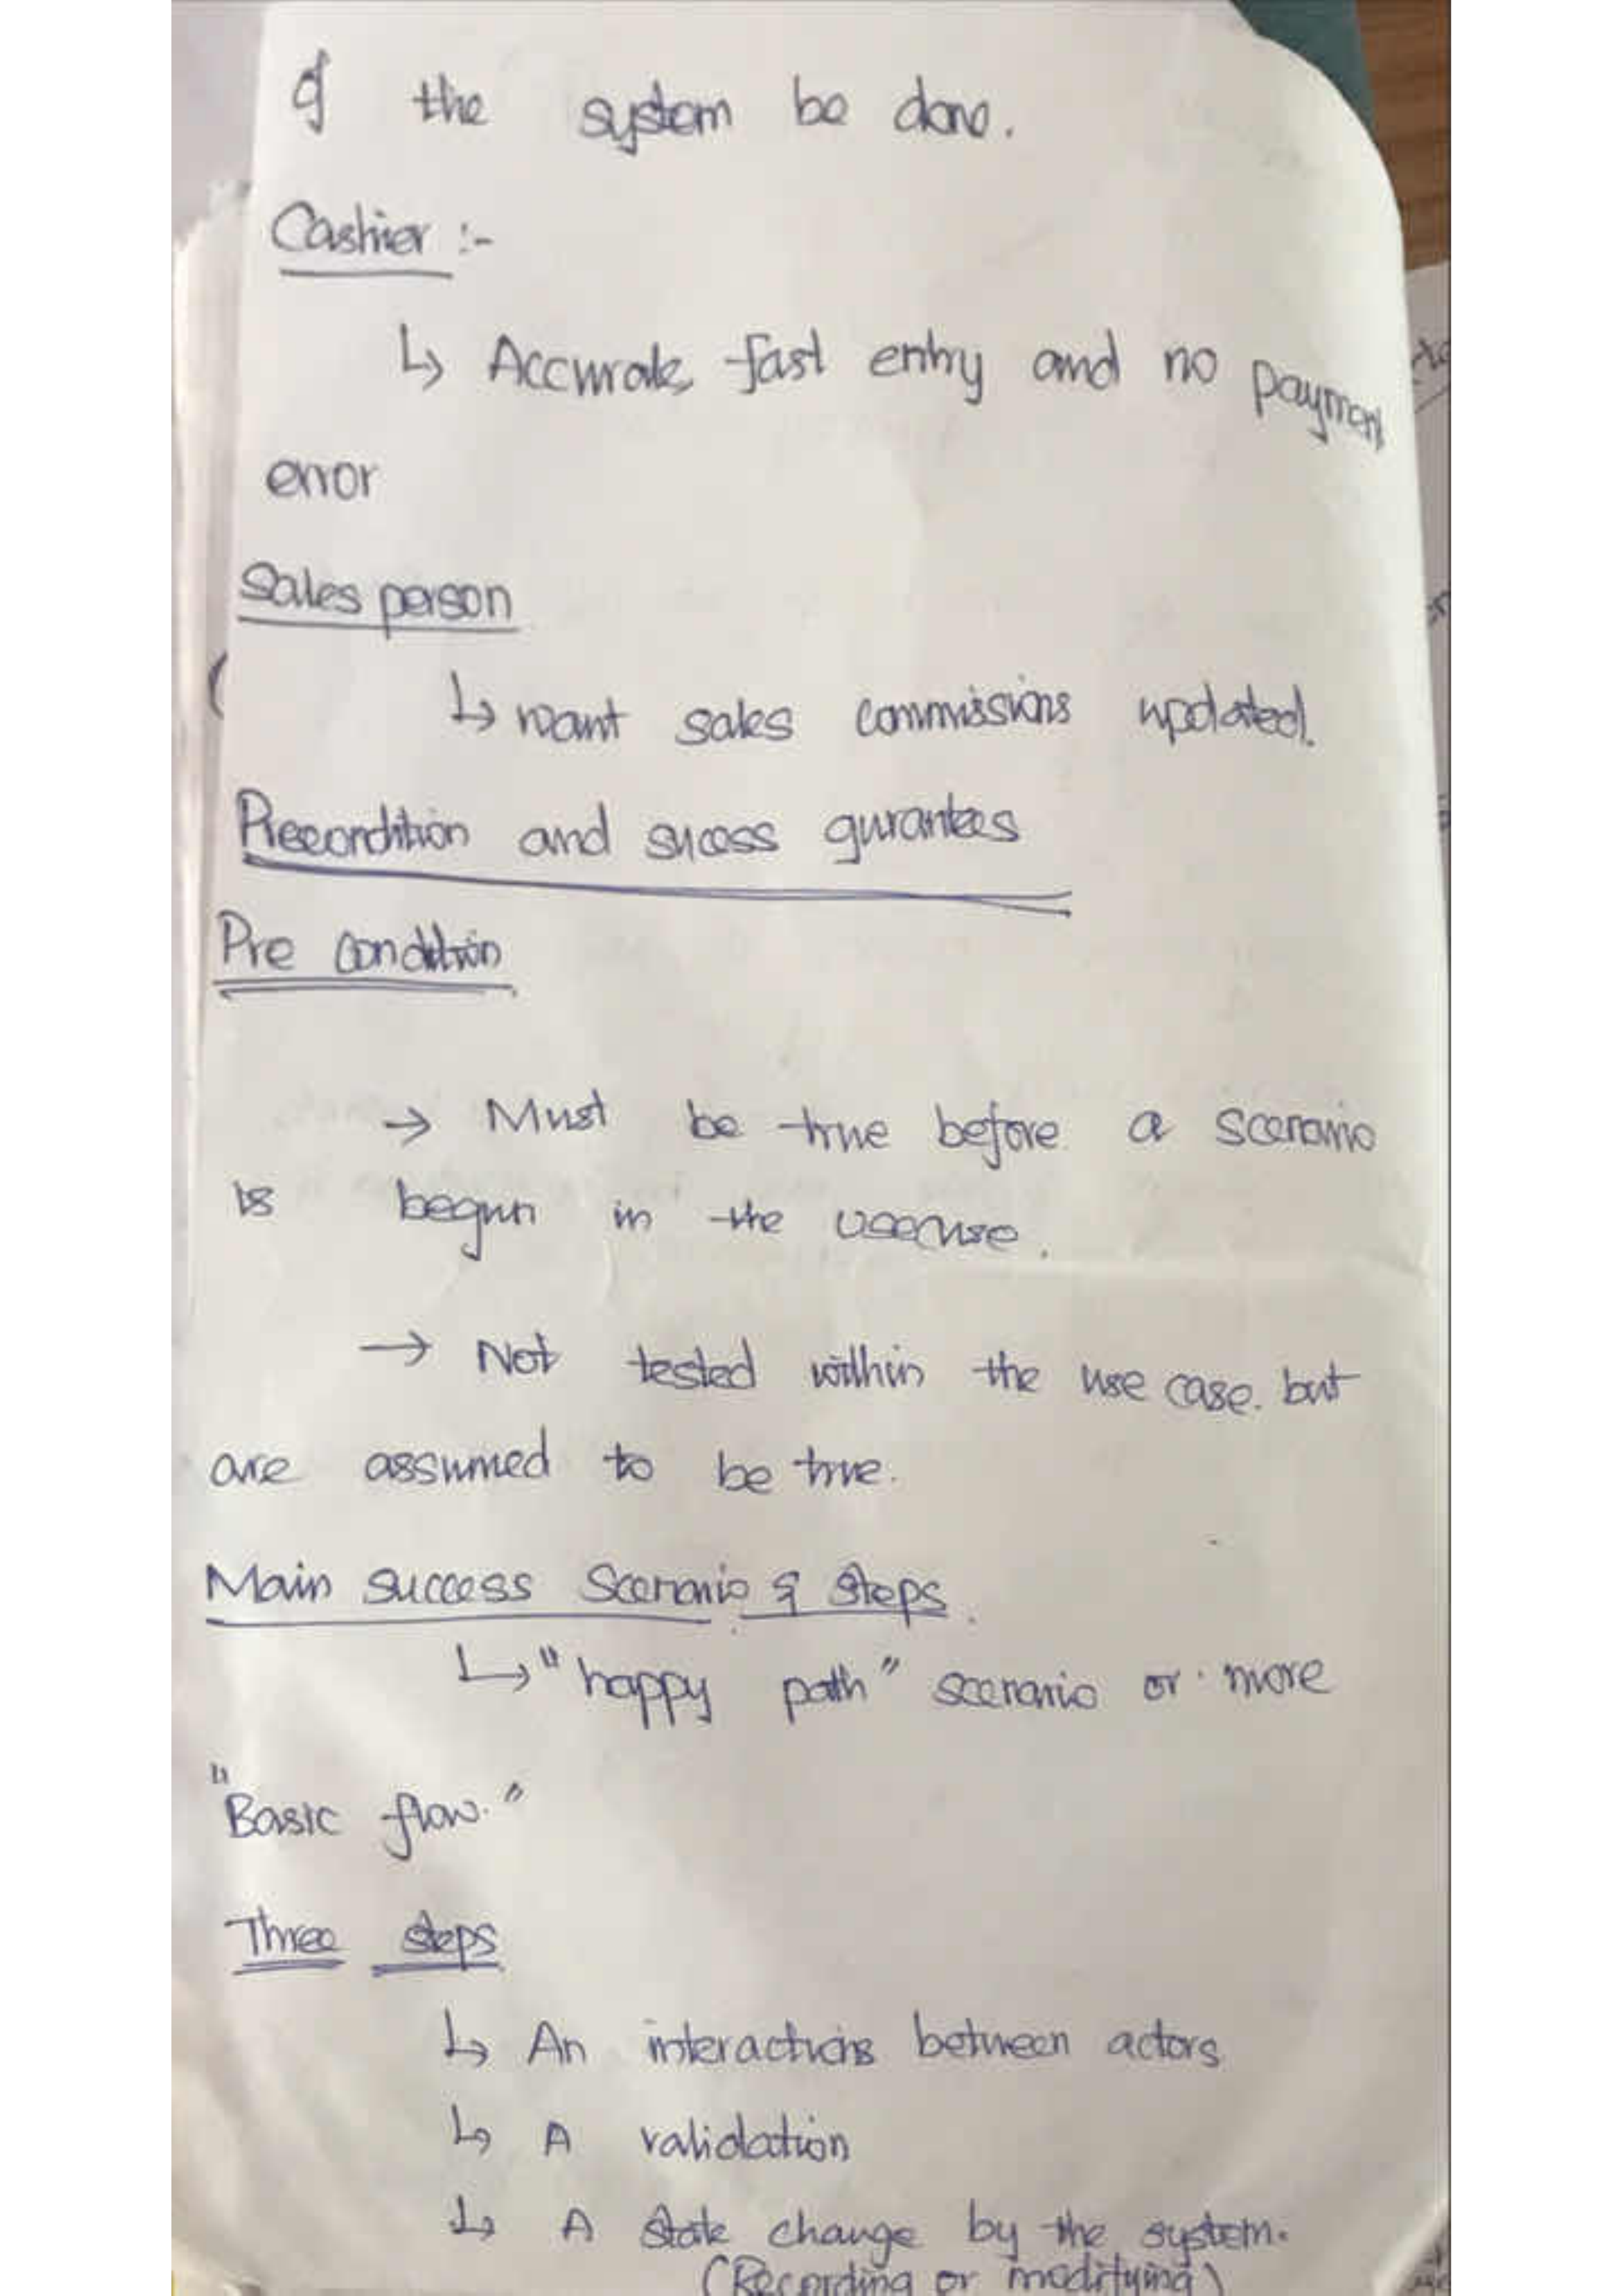 of the system be done.
Cashier :-
↳ Accurate, fast entry and no payment
error
Sales person
↳ want sales commissions updated.
Precondition and sucess gurantees
Pre condition
→ Must be true before a scenario
is begun in the usecase.
→ Not tested within the use case. but
are assumed to be true.
Main success Scenario & steps.
↳ "happy path" scenario or more
"Basic flow."
Three steps
↳ An interactions between actors
↳ A validation
↳ A state change by the system.
(Recording or modifying)